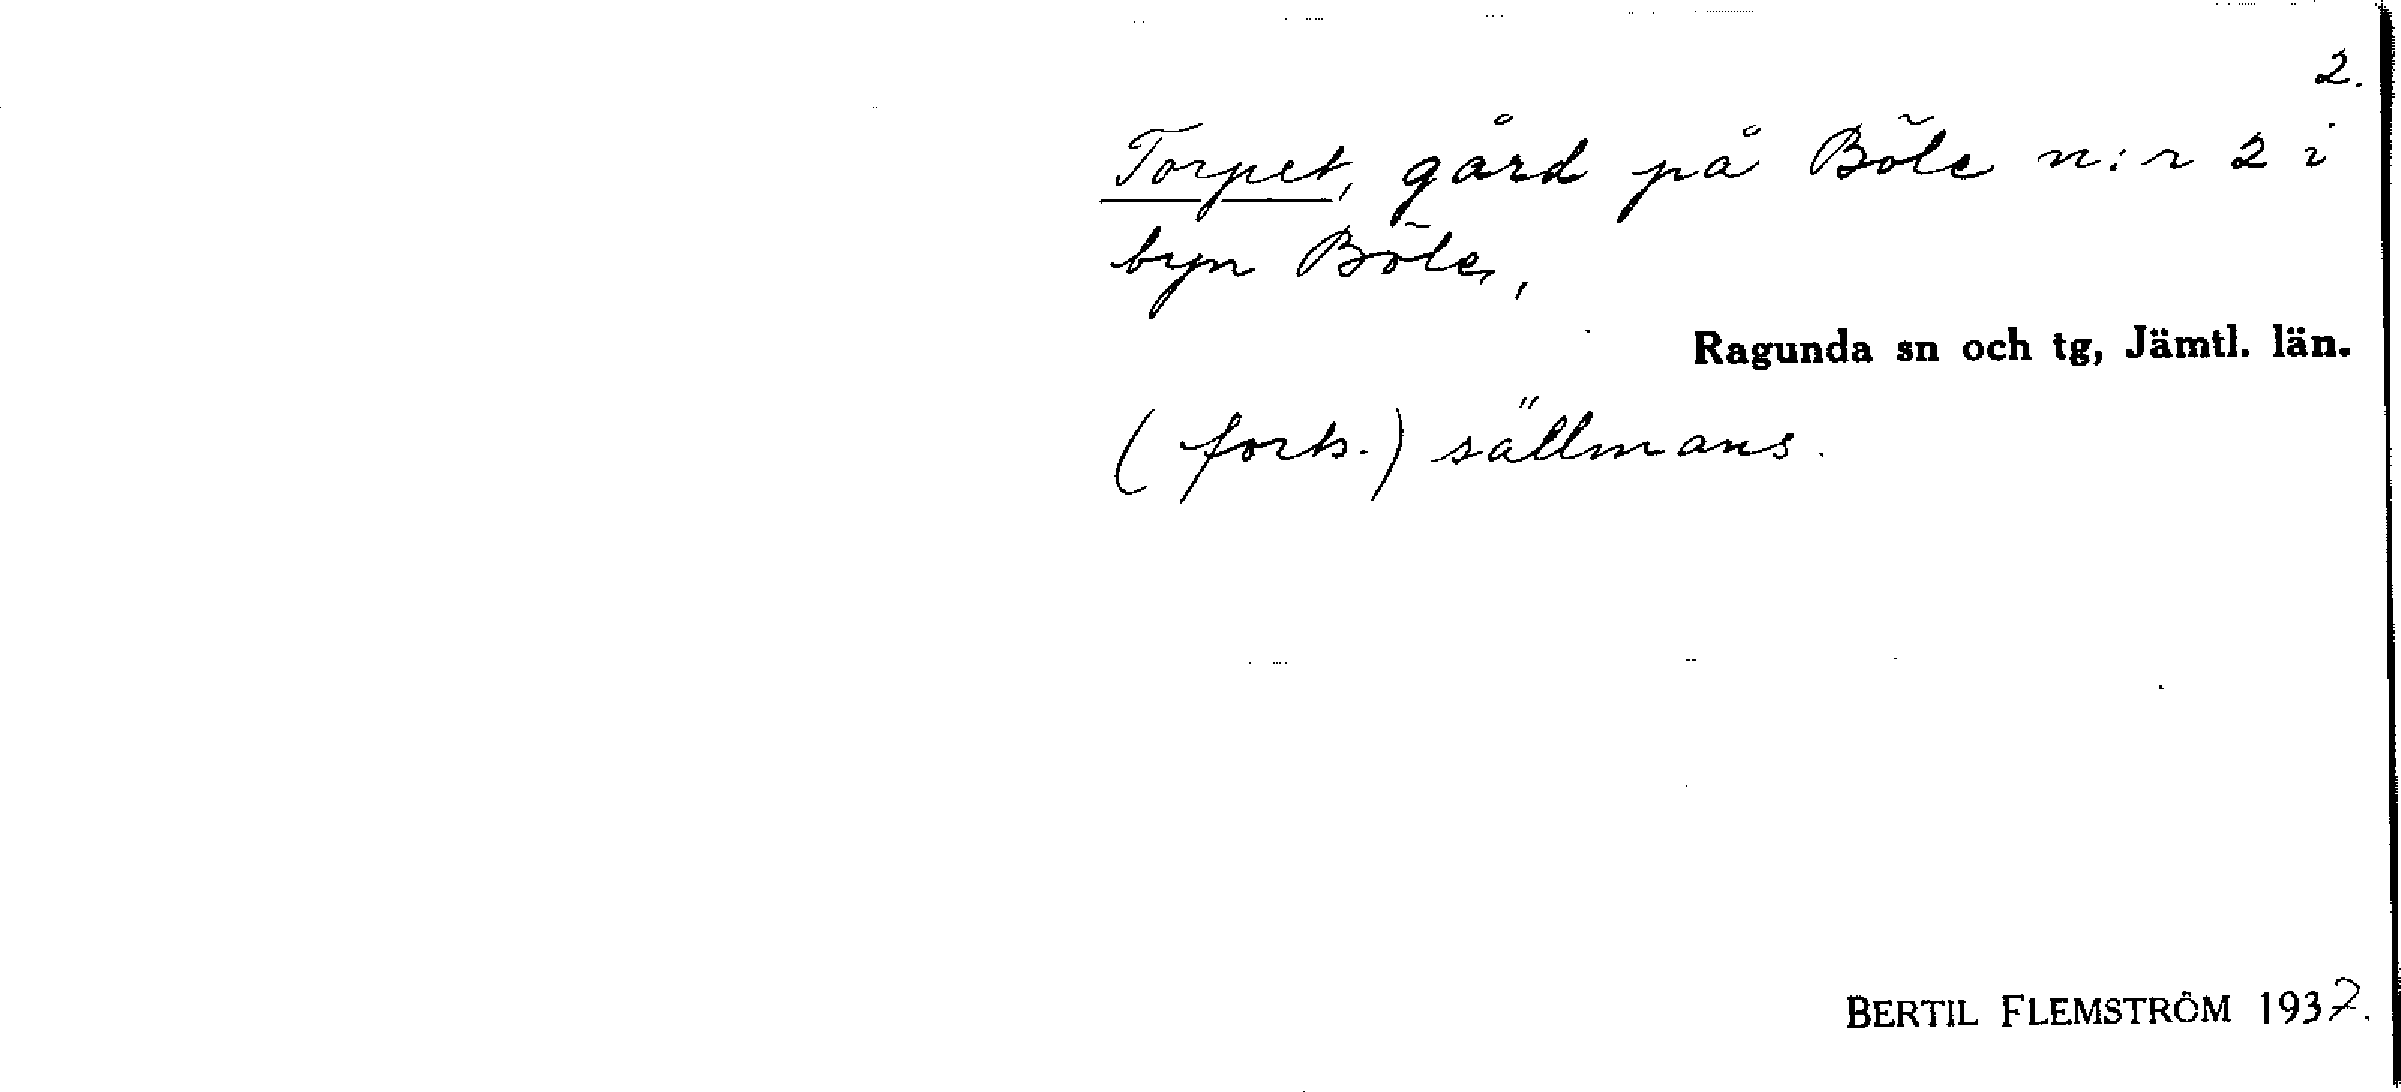 2.
Torpet, gård på Böle n:r 2 i
byn Böle,
Ragunda sn och tg, Jämtl. län.
(forts.) sällmans.
BERTIL FLEMSTRÖM 1937.